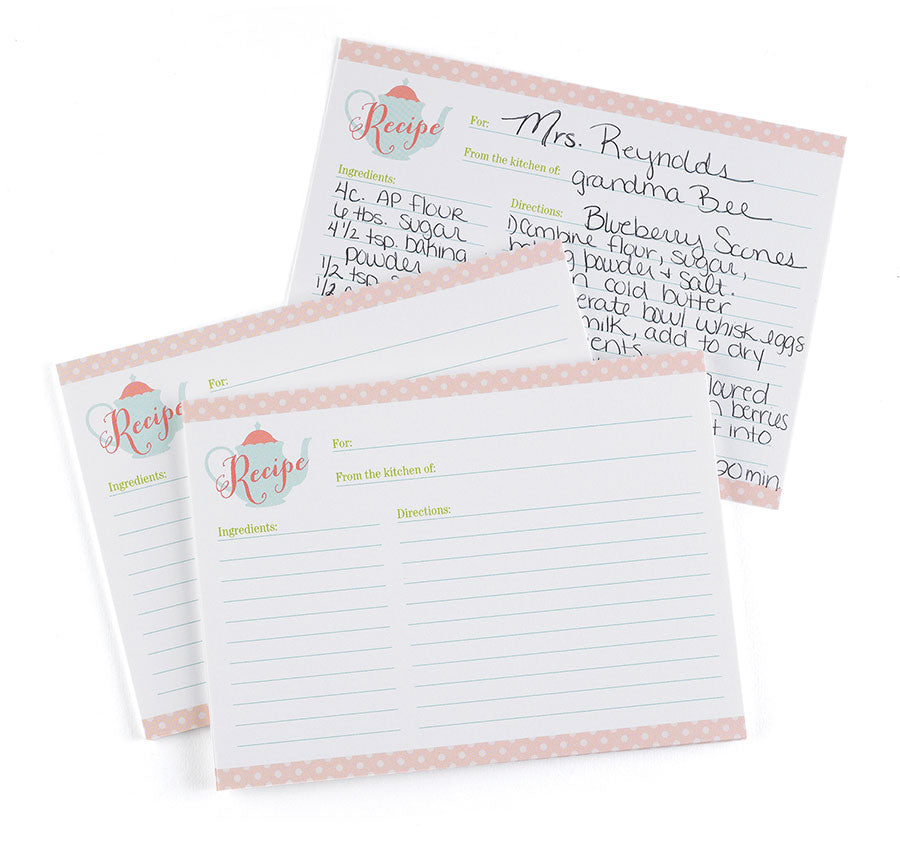 Recipe
For: Mrs. Reynolds
From the kitchen of: grandma Bee
Ingredients:
4c. AP flour
6 tbs. sugar
4 1/2 tsp. baking
powder
1/2 tsp.
1/2
Directions: Blueberry Scones
1) Combine flour, sugar,
powder + salt.
cold butter
bowl whisk eggs
milk, add to dry
berries
into
20 min
Recipe
For:
Ingredients:
Recipe
For:
From the kitchen of:
Ingredients:
Directions: